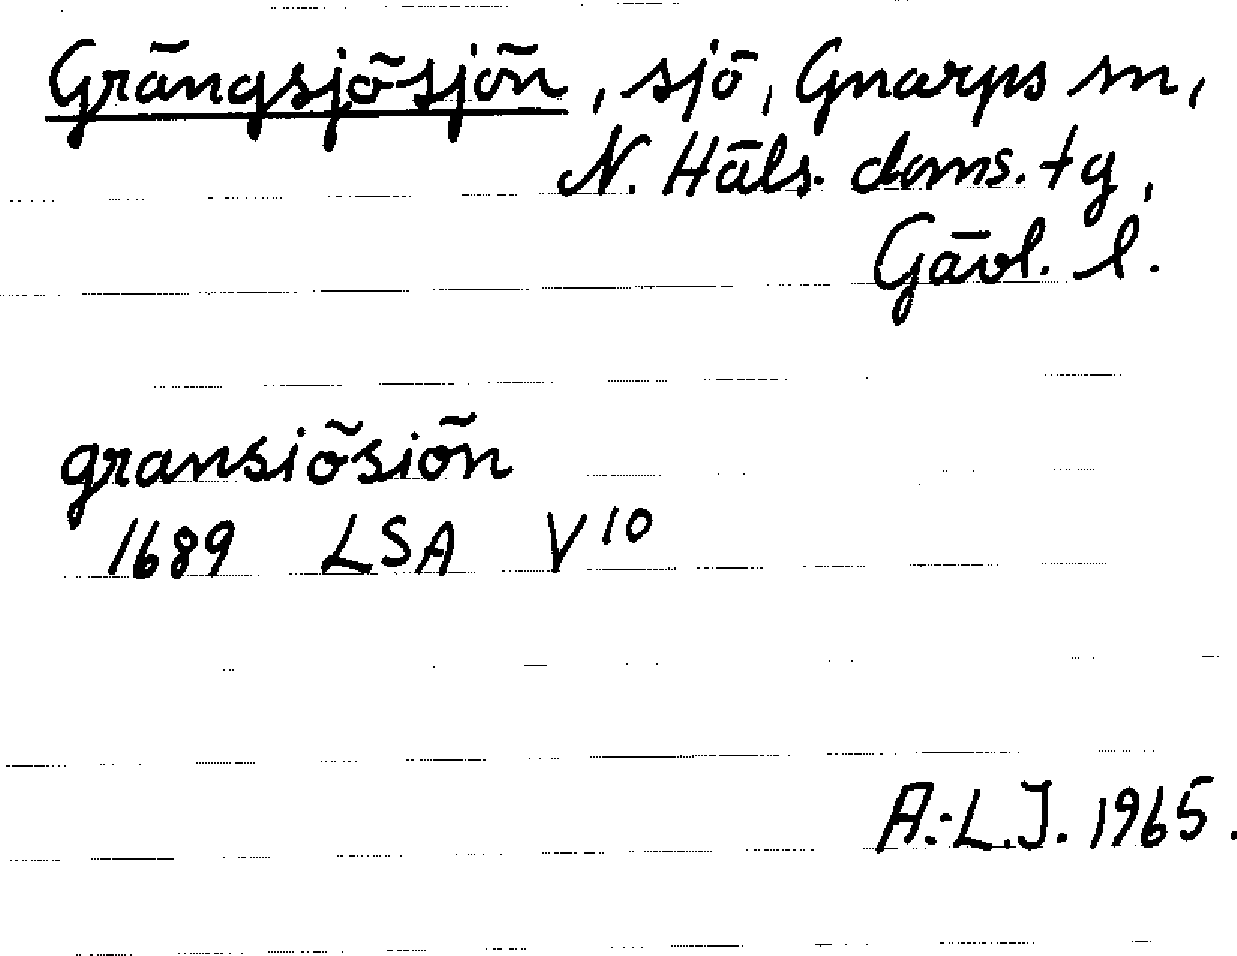 Grängsjösjön, sjö, Gnarps sn,
N. Häls. doms. tg,
Gävl. l.
gransiösiön
1689 LSA V10
A.-L.J. 1965.